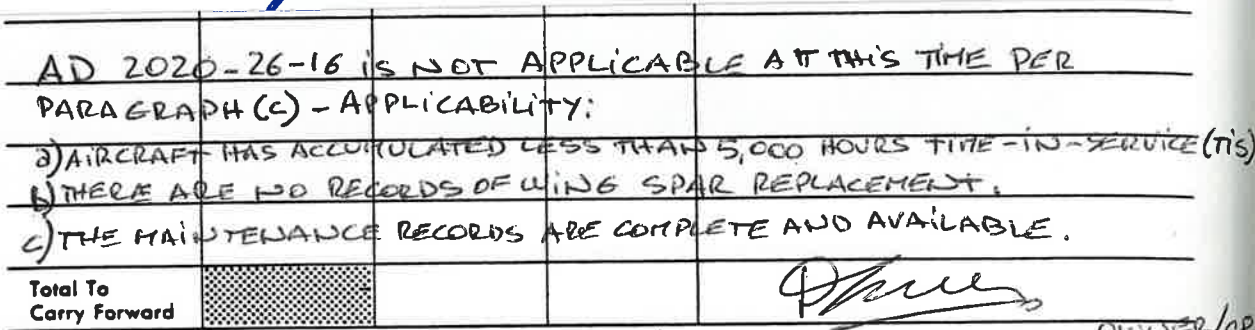 AD 2020-26-16 is NOT APPLICABLE AT THIS TIME PER
PARAGRAPH (c) - APPLICABILITY:
a) AIRCRAFT HAS ACCUMULATED LESS THAN 5,000 HOURS TIME-IN-SERVICE (TIS)
b) THERE ARE NO RECORDS OF WING SPAR REPLACEMENT.
c) THE MAINTENANCE RECORDS ARE COMPLETE AND AVAILABLE.
Total To
Carry Forward